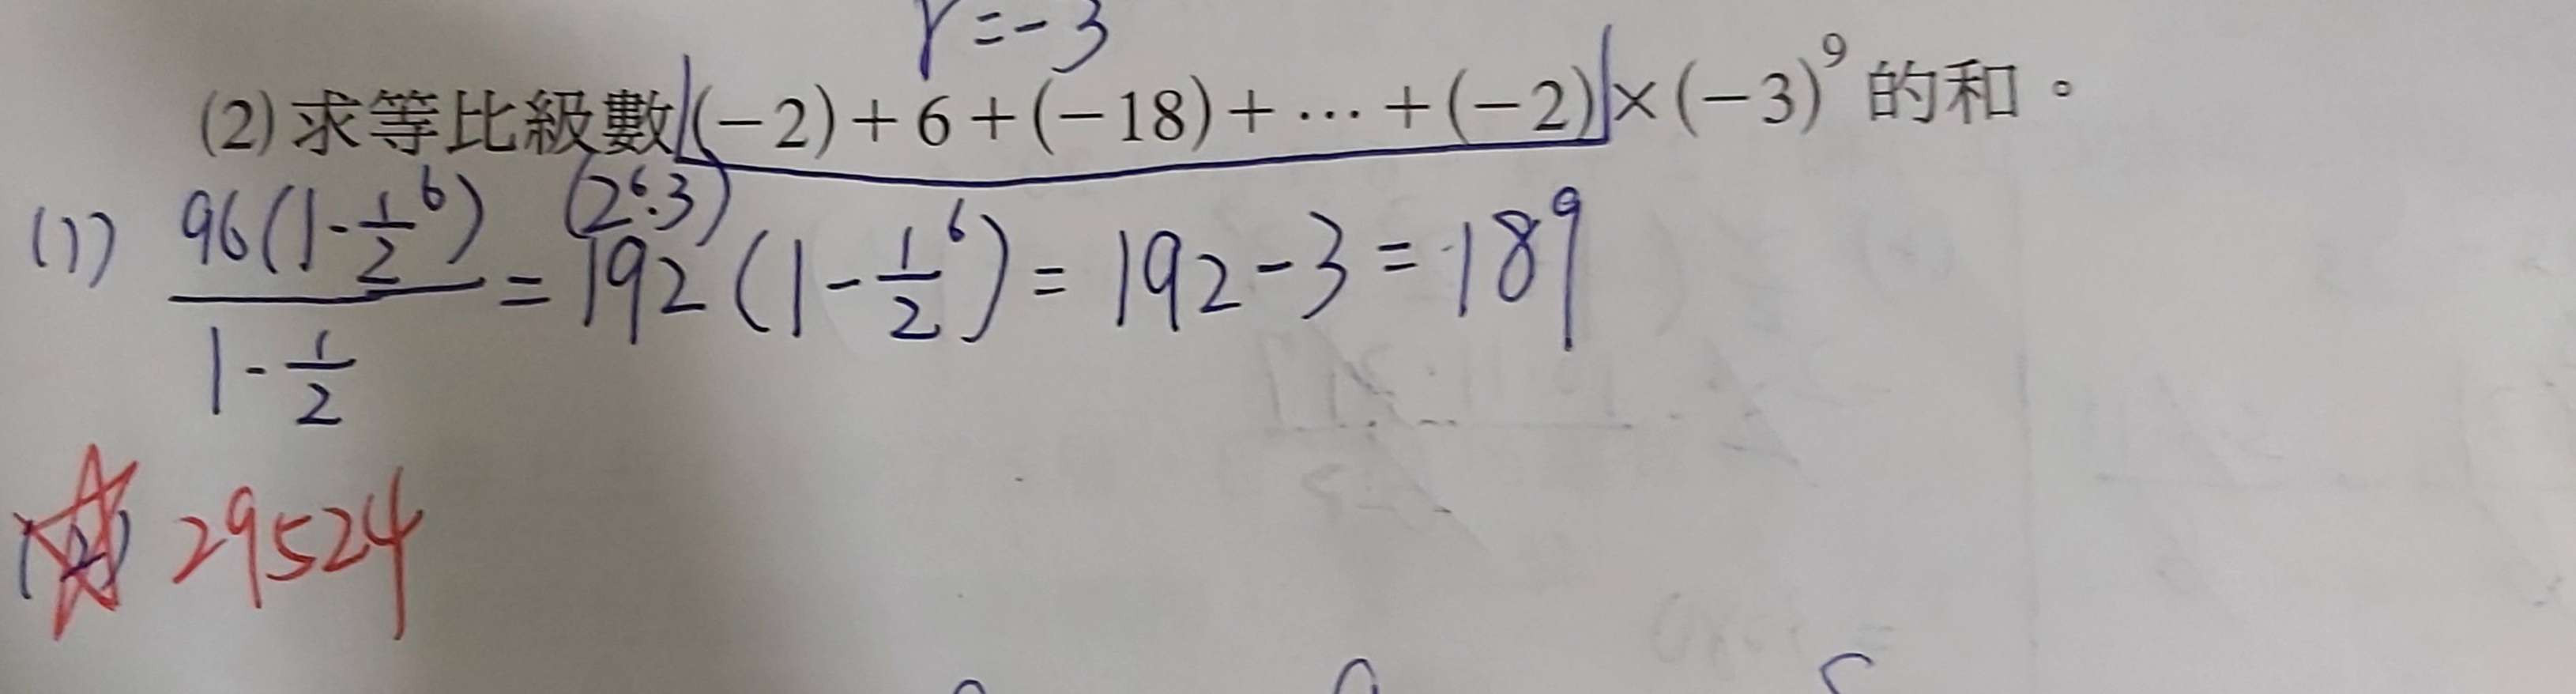 r=-3
(2)求等比級數(-2)+6+(-18)+⋯+(-2)×(-3)⁹的和。
(1) 96(1-1/2⁶)/(1-1/2) = 192(1-1/2⁶) = 192-3 = 189
(2⁶·3)
(2) 29524